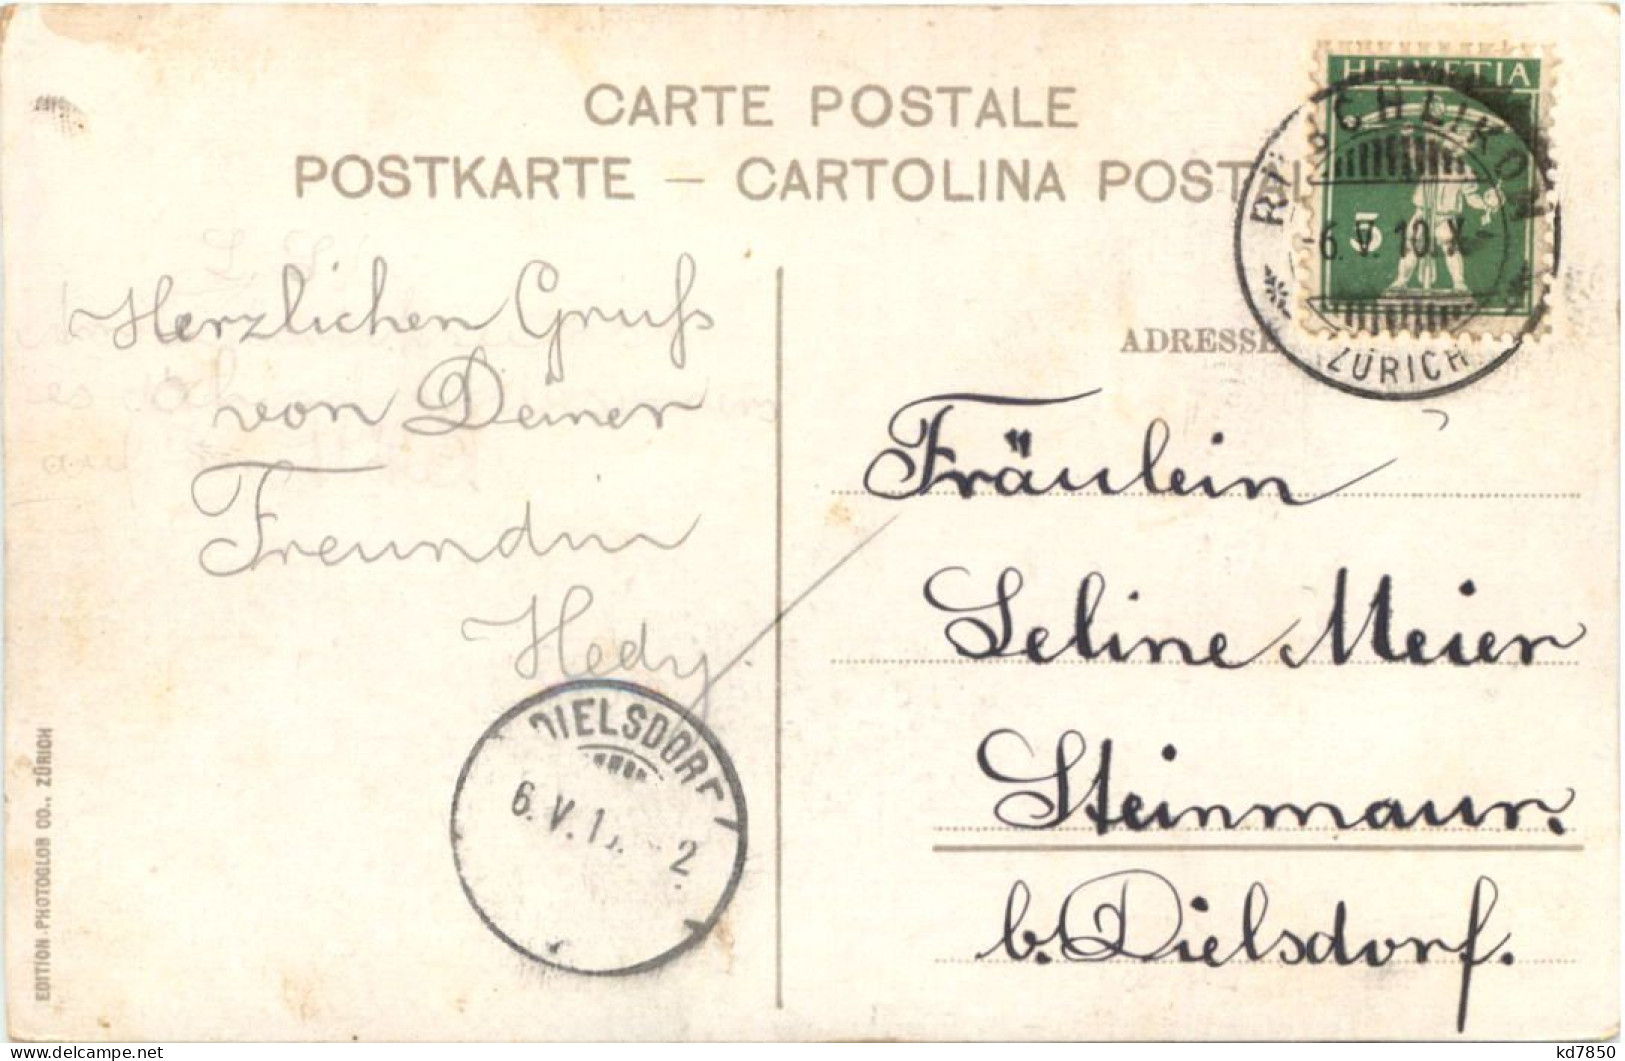 CARTE POSTALE
POSTKARTE – CARTOLINA POST
HELVETIA
5
6. V. 10. X
ZÜRICH
ADRESSE
Herzlichen Gruß
von Deiner
Freundin
Hedy.
Fräulein
Seline Meier
Steinmaur.
b. Dielsdorf.
DIELSDORF
6. V. 1
2
EDITION PHOTOGLOB CO., ZÜRICH
kd7850